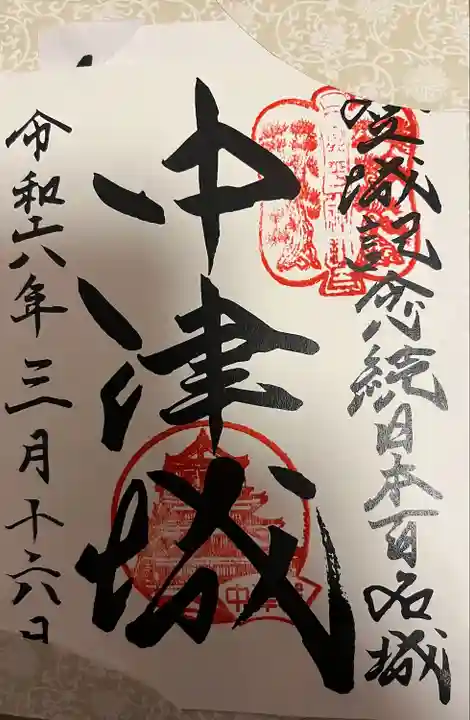 登城記念続日本百名城
中津城
令和六年三月十六日